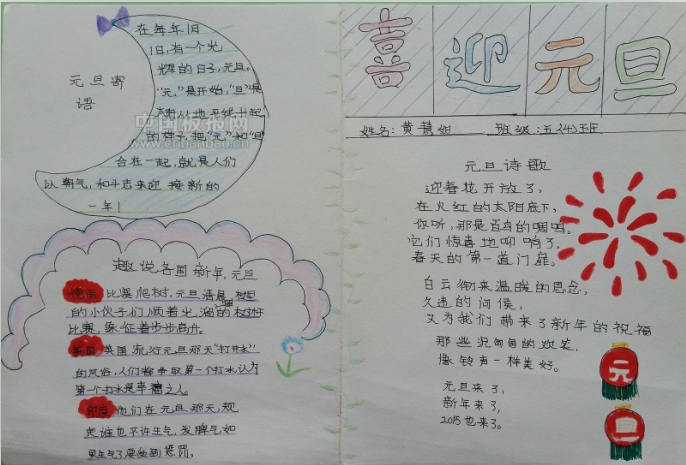 元旦寄
语
在每年1月
1日,有一个光
辉的日子,元旦。
“元”是开始,“旦”是
太阳从地平线升起
的样子,把“元”和“旦”
合在一起,就是人们
以朝气,和斗志来迎接新的
一年!
中国板报网
www.cnbanbao.cn
趣说各国新年,元旦
德国 比赛爬树,元旦清晨,德国
的小伙子们顺着光滑的树
比赛,象征着步步高升。
英国 英国流行元旦那天“打井水”
的风俗,人们都争取第一个打水,认为
第一个打水是幸福之人。
他们在元旦那天,规
定谁也不许生气,发脾气,如
果生气了要做到惩罚。
喜迎元旦
姓名:黄慧 班级:五(4)班
元旦诗歌
迎春花开放了,
在火红的太阳底下,
你听,那是百鸟的啁啁。
它们惊喜地聊响了,
春天的第一道门扉。
白云衔来温暖的思念,
久违的问候,
又为我们带来了新年的祝福
那些沉甸甸的欢笑,
像铃声一样美好。
元旦来了,
新年来了,
2015也来了。
元
旦